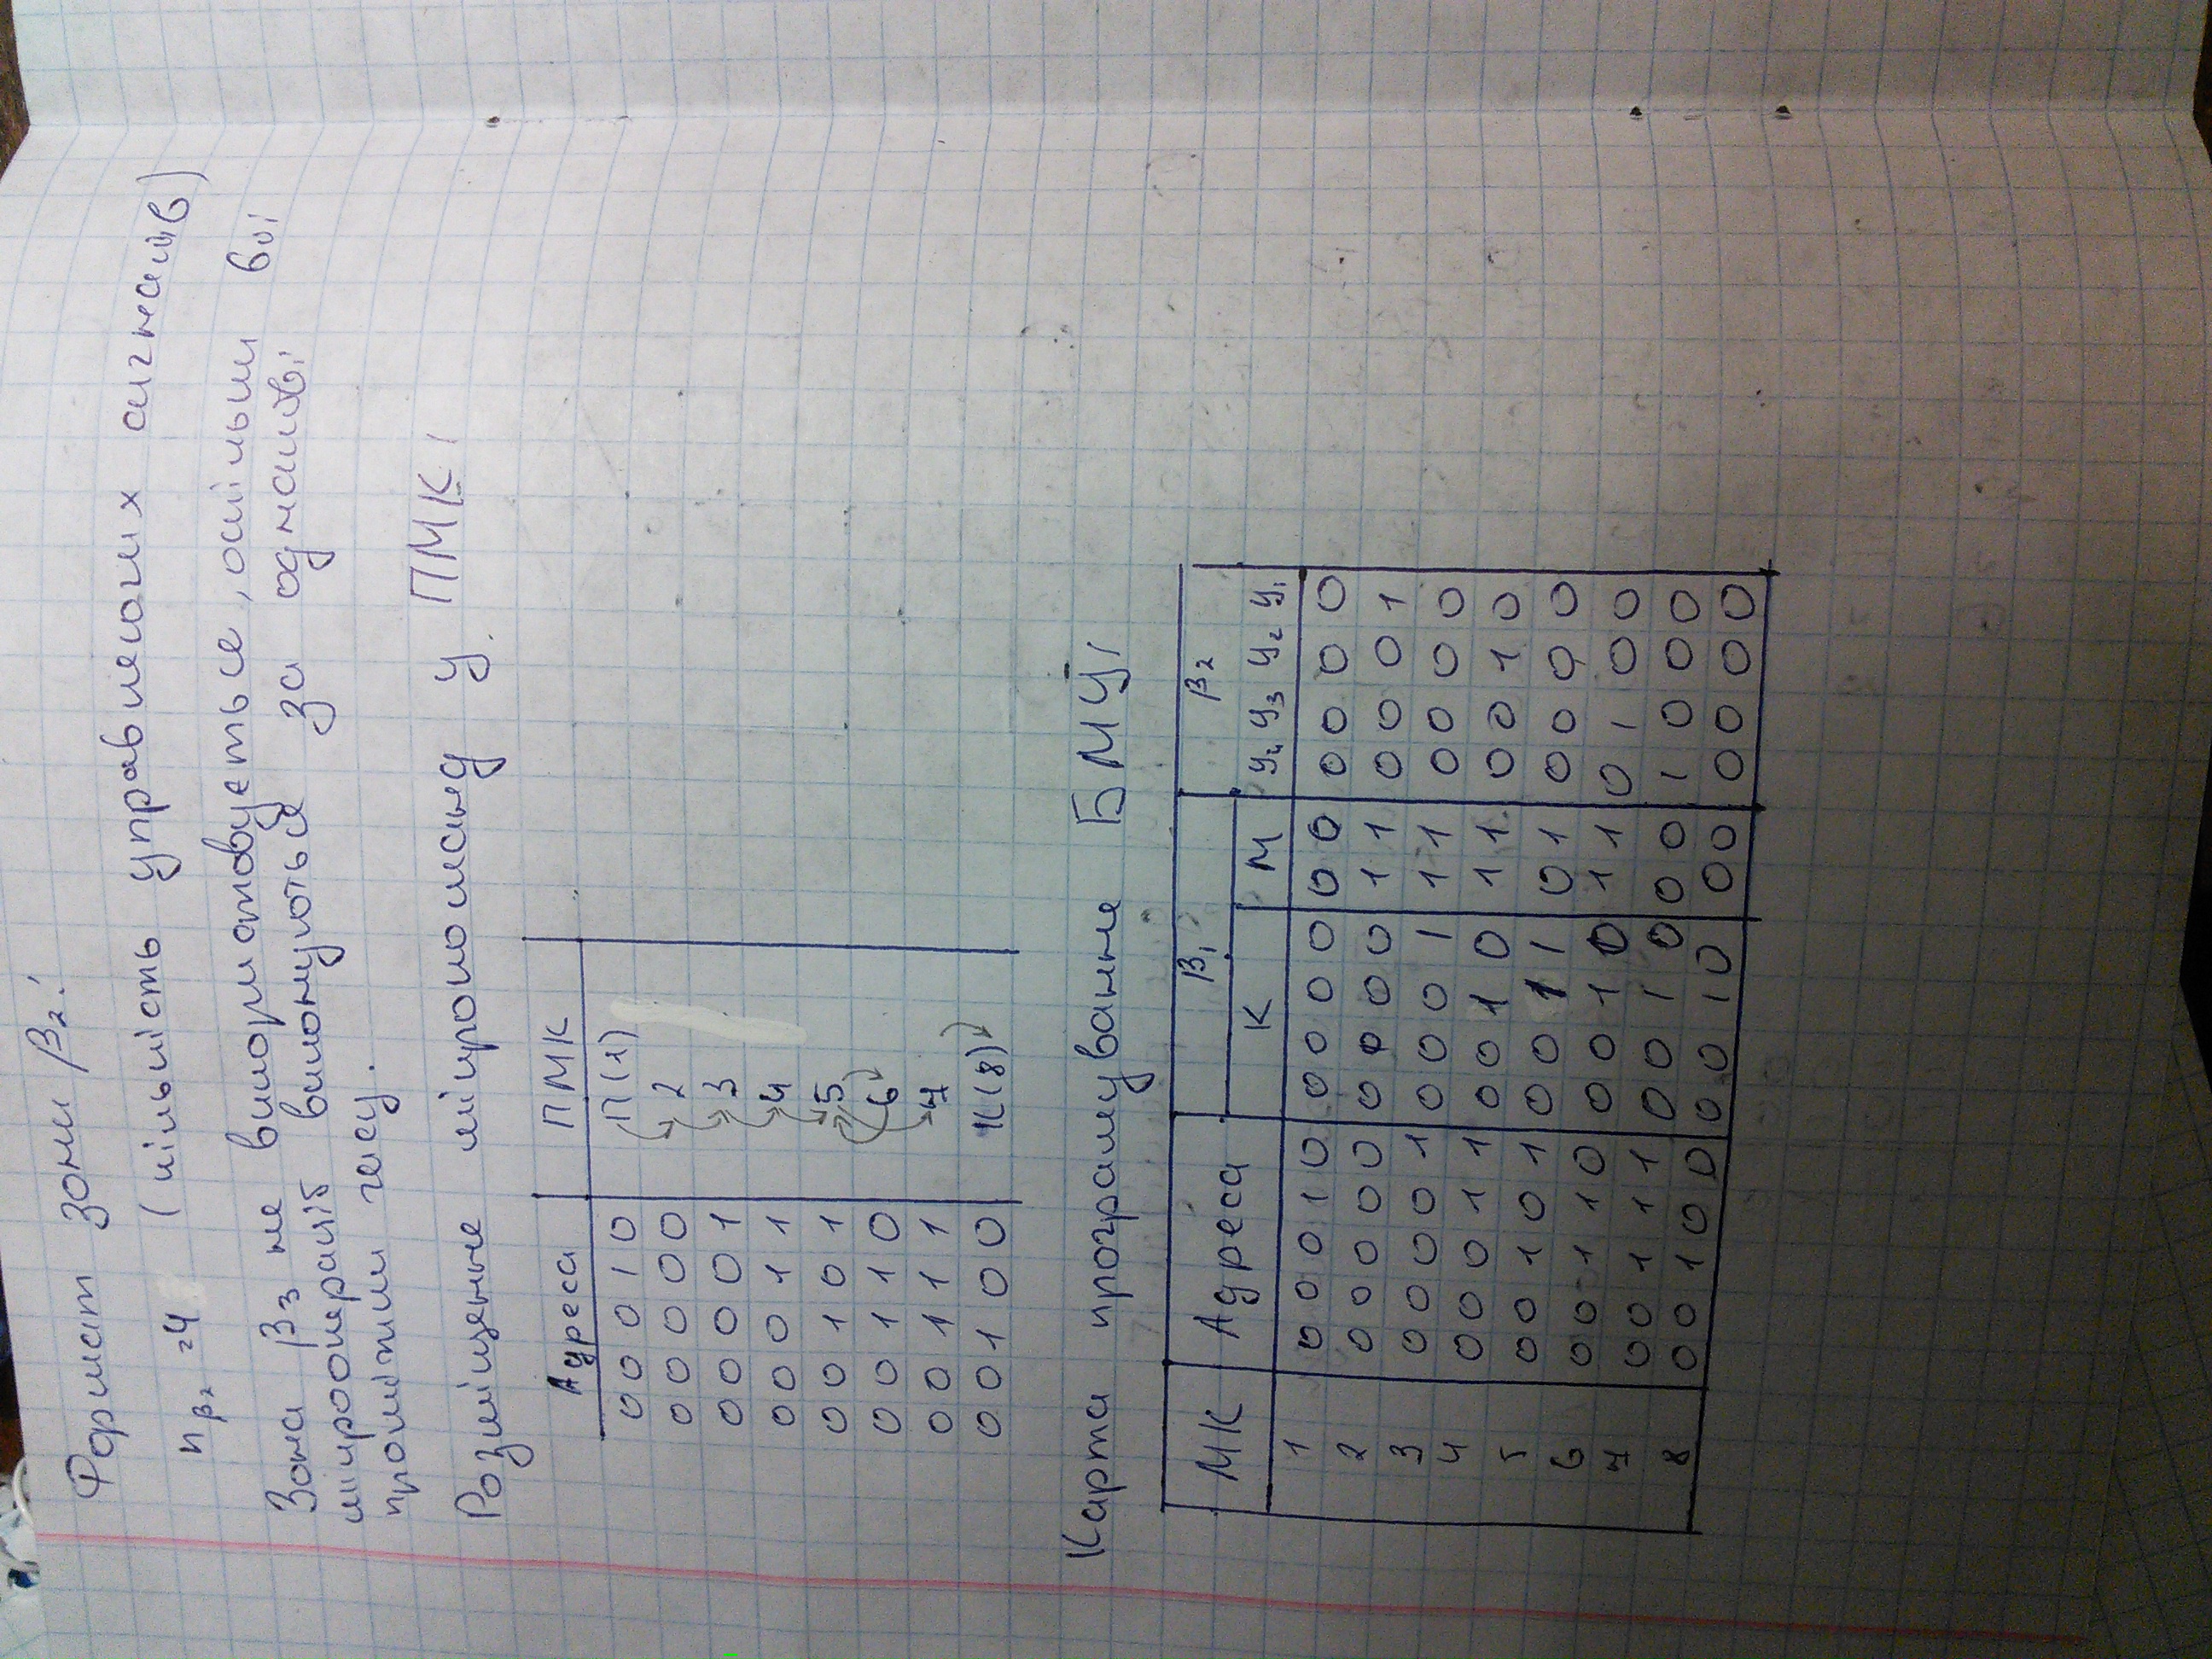 Формат зони β₂:
n β₂ = 4 (кількість управляючих сигналів)
Зона β₃ не використовується, оскільки всі
мікрооперації виконуються за однакові
проміжки часу.
Розміщення мікрокоманд у ПМК:
Адреса ПМК
0 0 0 1 0 П(1)
0 0 0 0 0 2
0 0 0 0 1 3
0 0 0 1 1 4
0 0 1 0 1 5
0 0 1 1 0 6
0 0 1 1 1 7
0 0 1 0 0 К(8)
Карта програмування БМУ:
МК Адреса β₁ β₂
К М y₄ y₃ y₂ y₁
1 0 0 0 1 0 0 0 0 0 0 0 0 0 0 0
2 0 0 0 0 0 0 0 0 0 1 1 0 0 0 1
3 0 0 0 0 1 0 0 0 1 1 1 0 0 0 0
4 0 0 0 1 1 0 0 1 0 1 1 0 0 1 0
5 0 0 1 0 1 0 0 1 1 0 1 0 0 0 0
6 0 0 1 1 0 0 0 1 0 1 1 0 1 0 0
7 0 0 1 1 1 0 0 1 0 0 0 1 0 0 0
8 0 0 1 0 0 0 0 1 0 0 0 0 0 0 0